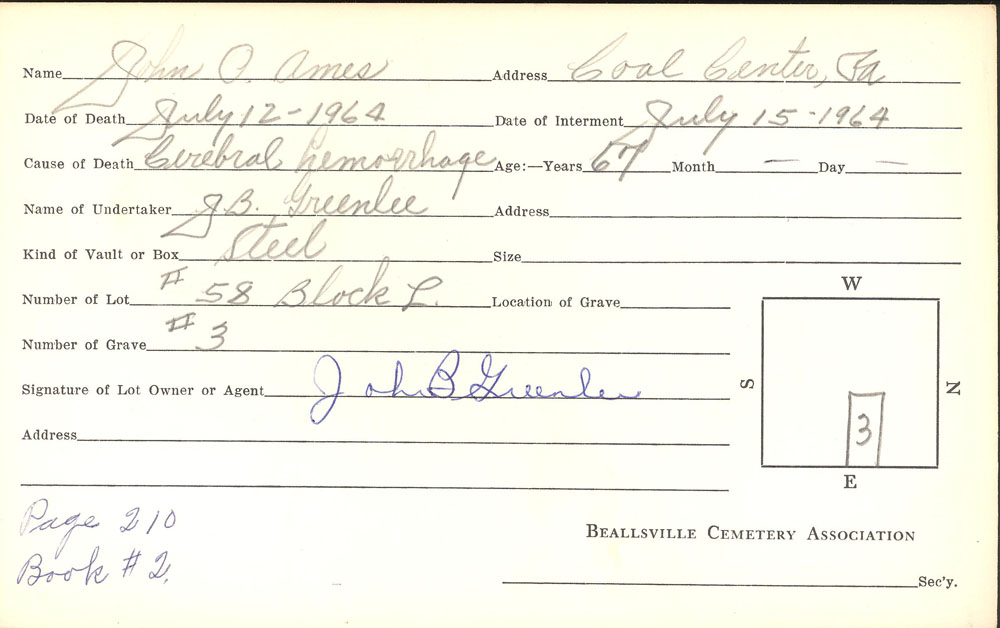 Name John O. Ames Address Coal Center, Pa
Date of Death July 12-1964 Date of Interment July 15-1964
Cause of Death Cerebral hemorrhage Age:—Years 67 Month — Day —
Name of Undertaker J B. Greenlee Address
Kind of Vault or Box Steel Size
Number of Lot # 58 Block L. Location of Grave
Number of Grave # 3
Signature of Lot Owner or Agent John B Greenlee
Address
W
S
N
3
E
Page 210
Book # 2.
BEALLSVILLE CEMETERY ASSOCIATION
Sec'y.